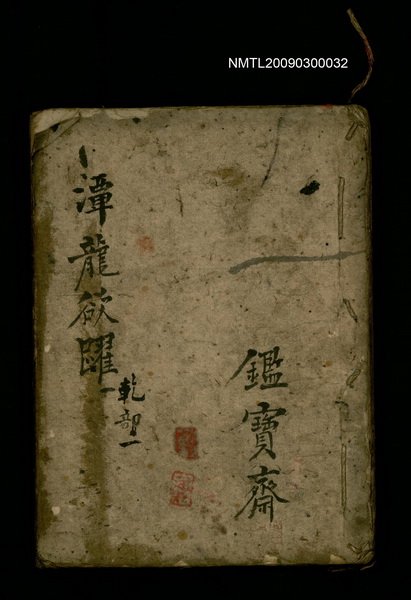 NMTL20090300032
鑑寶齋
潭龍欲躍
乾部一